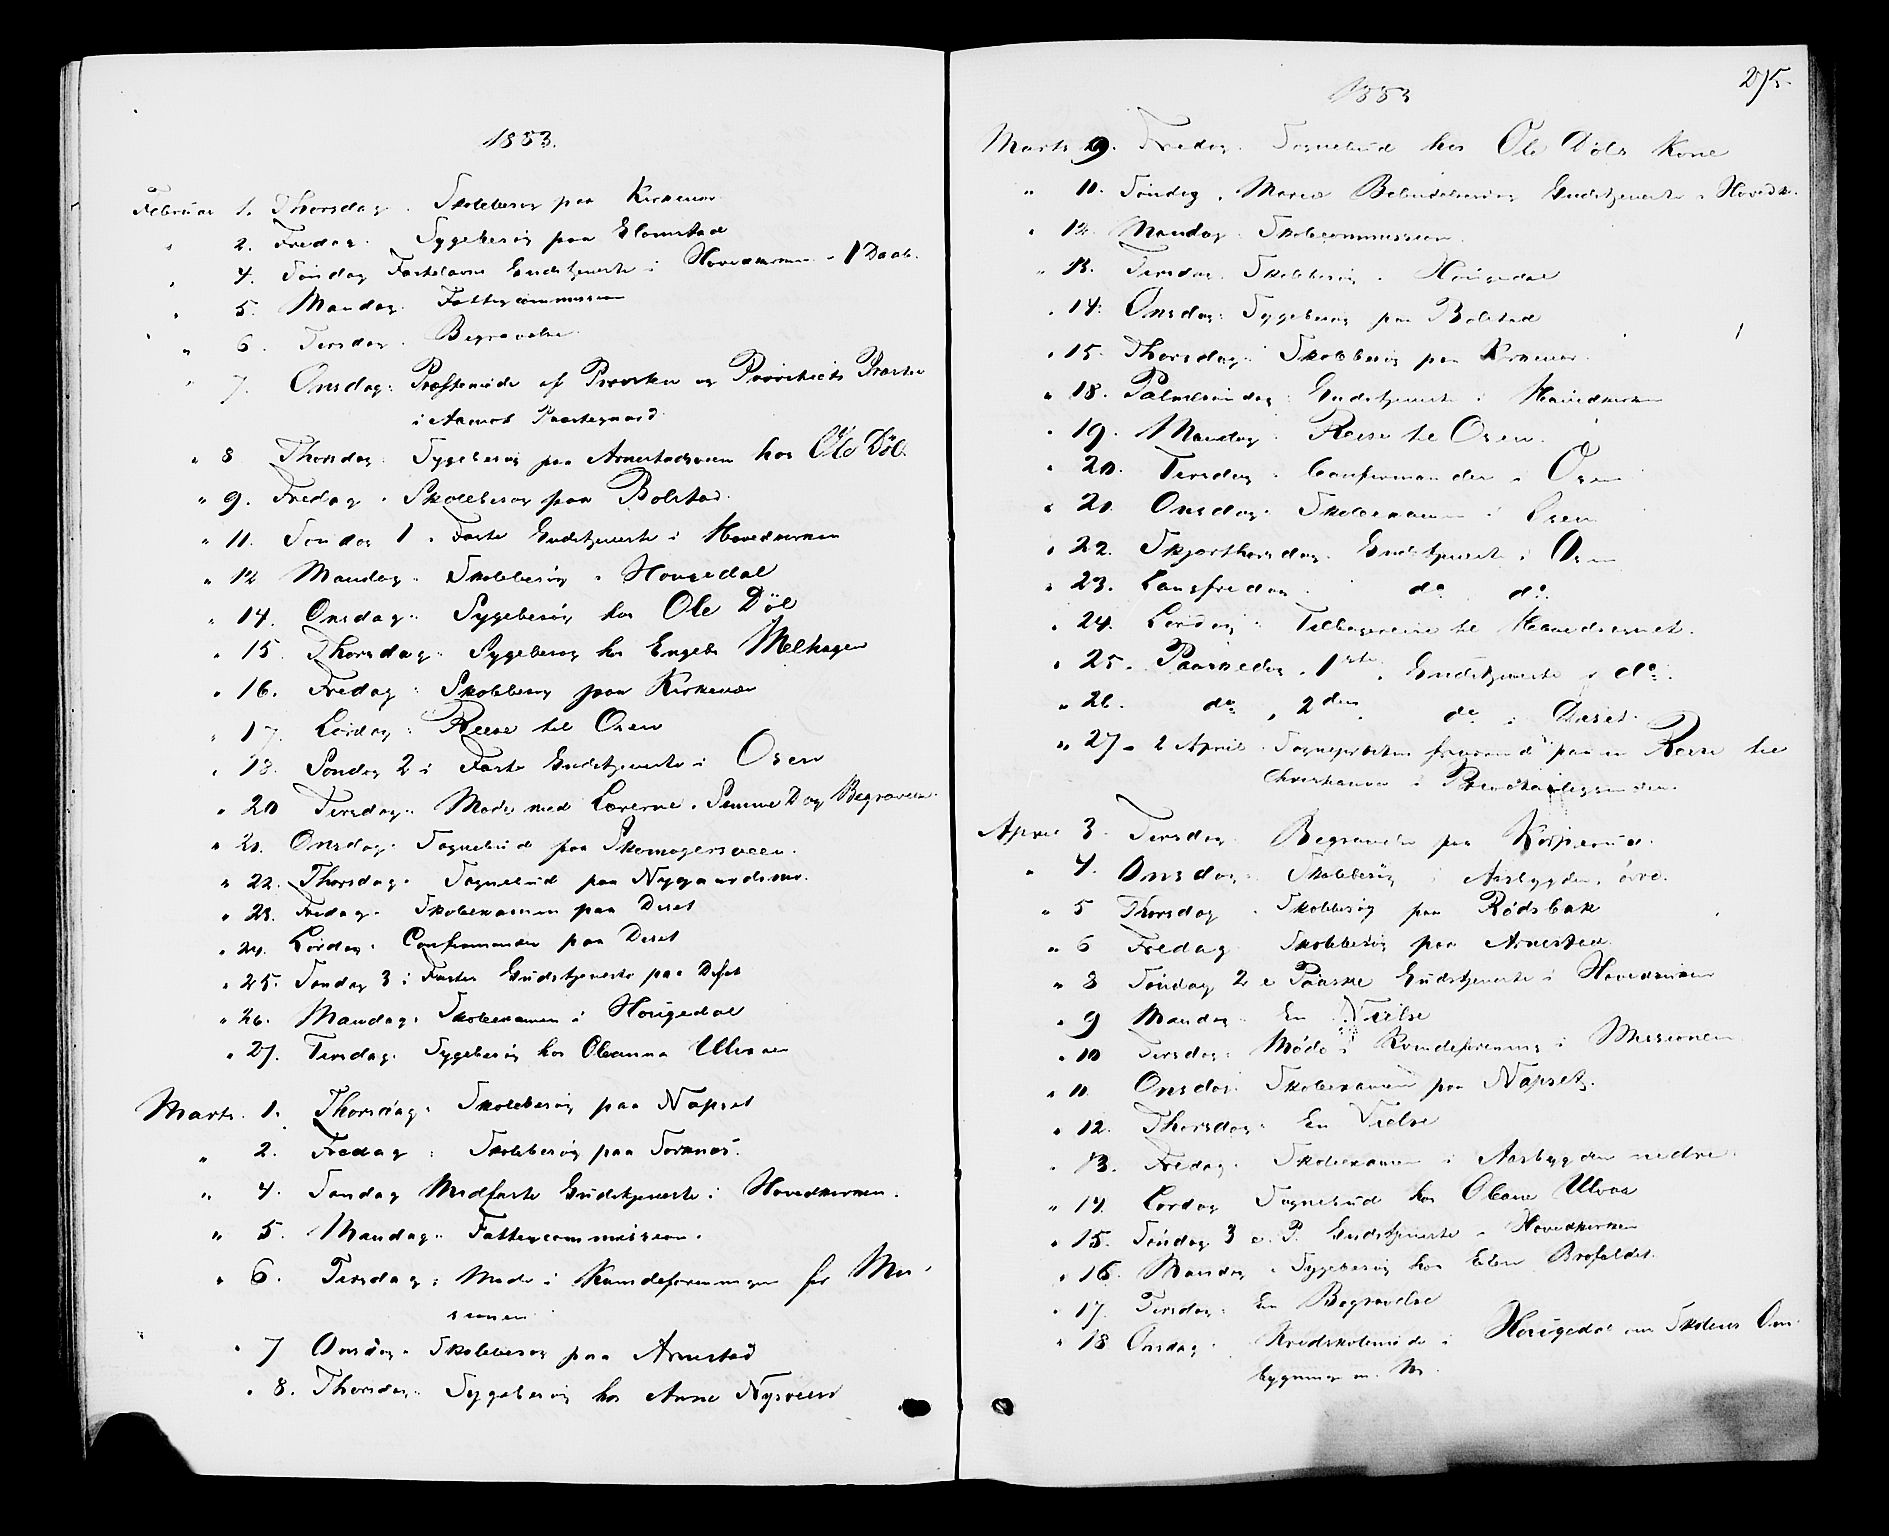 1883.
Februar 1. Thorsdag. Skolebesøg paa Kirkenær
" 2. Fredag. Sygebesøg paa Blomstad
" 4. Søndag Fastelavns Gudstjeneste i Hovedkirken - 1 Daab.
" 5. Mandag. Fattigcommission
" 6. Tirsdag. Begravelse.
" 7. Onsdag. Præstemøde af Provsten og Provstiets Præster
i Aamot Præstegaard.
" 8 Thorsdag. Sygebesøg paa Arnestadsveen hos Ole Døl.
" 9. Fredag. Skolebesøg paa Bolstad.
" 11. Søndag 1 i Faste Gudstjeneste i Hovedkirken
" 12 Mandag. Skolebesøg i Hougedal
" 14. Onsdag. Sygebesøg hos Ole Døl
" 15. Thorsdag. Sygebesøg hos Engebr Melhagen
" 16. Fredag. Skolebesøg paa Kirkenær
" 17. Lørdag. Reise til Osen
" 18. Søndag 2 i Faste Gudstjeneste i Osen
" 20 Tirsdag. Møde med Lærerne. Samme Dag Begravelse.
" 21. Onsdag. Sognebud paa Skomagersveen.
" 22. Thorsdag. Sognebud paa
" 23. Fredag. Skoleexamen paa Deset
" 24. Lørdag. Confirmander paa Deset
" 25. Søndag 3 i Faste Gudstjeneste paa Deset
" 26. Mandag. Skoleexamen i Hougedal
" 27. Tirsdag. Sygebesøg hos Oleanna Ulvaaen
Marts. 1. Thorsdag. Skolebesøg paa Napset
" 2. Fredag. Skolebesøg paa Sorknæs.
" 4. Søndag Midfaste Gudstjeneste i Hovedkirken.
" 5. Mandag. Fattigcommission.
" 6. Tirsdag. Møde i Kvindeforeningen for Mis-
sionen
" 7 Onsdag. Skolebesøg paa Arnestad
" 8. Thorsdag. Sygebesøg hos Anne Nysveen
1883
275.
Marts 9. Fredag. Sognebud hos Ole Døls Kone
" 11. Søndag. Mariæ Bebudelsesdag Gudstjeneste i Hovedk.
" 12. Mandag. Skolecommission.
" 13. Tirsdag. Skolebesøg i Hougedal
" 14. Onsdag. Sygebesøg paa Bolstad
" 15. Thorsdag. Skolebesøg paa Kirkenær.
" 18. Palmesøndag. Gudstjeneste i Hovedkirken
" 19. Mandag. Reise til Osen.
" 20. Tirsdag. Confirmander i Osen
" 21. Onsdag. Skoleexamen i Osen
" 22. Skjærthorsdag. Gudstjeneste i Osen
" 23. Langfredag. do do.
" 24. Lørdag. Tilbagereise til Hovedsognet.
" 25. Paaskedag. 1ste. Gudstjeneste i do.
" 26. do, 2den. do i Deset.
" 27 - 2 April. Sognepræsten fraværende paa en Reise til
Christiania i
April 3. Tirsdag. Begravelse paa
" 4. Onsdag. Skolebesøg i Aasbygden, øvre.
" 5 Thorsdag. Skolebesøg paa Rødsbak
" 6 Fredag. Skolebesøg paa Arnestad.
" 8 Søndag 2 e Paaske Gudstjeneste i Hovedkirken
" 9 Mandag. En Vielse
" 10 Tirsdag. Møde i Kvindeforening i Missionen
" 11. Onsdag. Skoleexamen paa Napset.
" 12. Thorsdag. En Vielse
" 13. Fredag. Skoleexamen i Aasbygden nedre.
" 14. Lørdag Sognebud hos Oleane Ulvaa
" 15. Søndag 3 e. P. Gudstjeneste i Hovedkirken
" 16. Mandag. Sygebesøg hos Brofaldet.
" 17. Tirsdag. En Begravelse
" 18 Onsdag. Kredsskolemøde i Hougedal om Skolens Om-
bygning m. M.